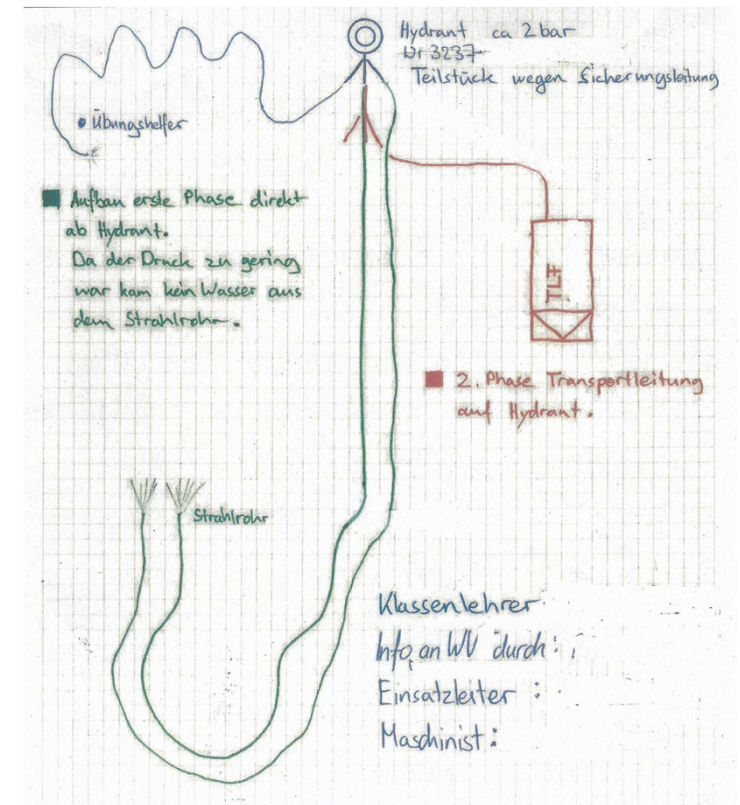 Hydrant ca 2 bar
Nr 3237
Teilstück wegen Sicherungsleitung
• Übungshelfer
Aufbau erste Phase direkt
ab Hydrant.
Da der Druck zu gering
war kam kein Wasser aus
dem Strahlrohr.
TLF
2. Phase Transportleitung
auf Hydrant.
Strahlrohr
Klassenlehrer
Info an WV durch:
Einsatzleiter :
Maschinist :